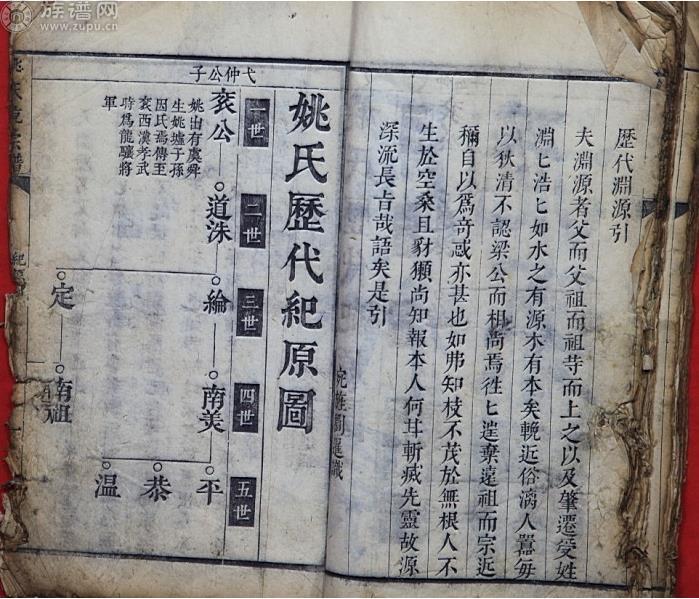 族谱网
www.zupu.cn
歷代淵源引
夫淵源者父而父祖而祖等而上之以及肇遷受姓
淵匕浩匕如水之有源木有本矣輓近俗漓人囂每
以狄清不認梁公而相高焉徃匕遑棄遠祖而宗近
禰自以爲奇惑亦甚也如弗知枝不茂於無根人不
生於空桑且豺獺尚知報本人何其斬先靈故源
深流長古哉語矣是引
姚氏歷代紀原圖
一世
二世
三世
四世
五世
弋仲公子
衮公
道洙
綸
南美
平
恭
温
定
南祖
姚出有虞舜
生姚墟子孫
因氏焉傳至
衮西漢孝武
時爲龍驤將
軍